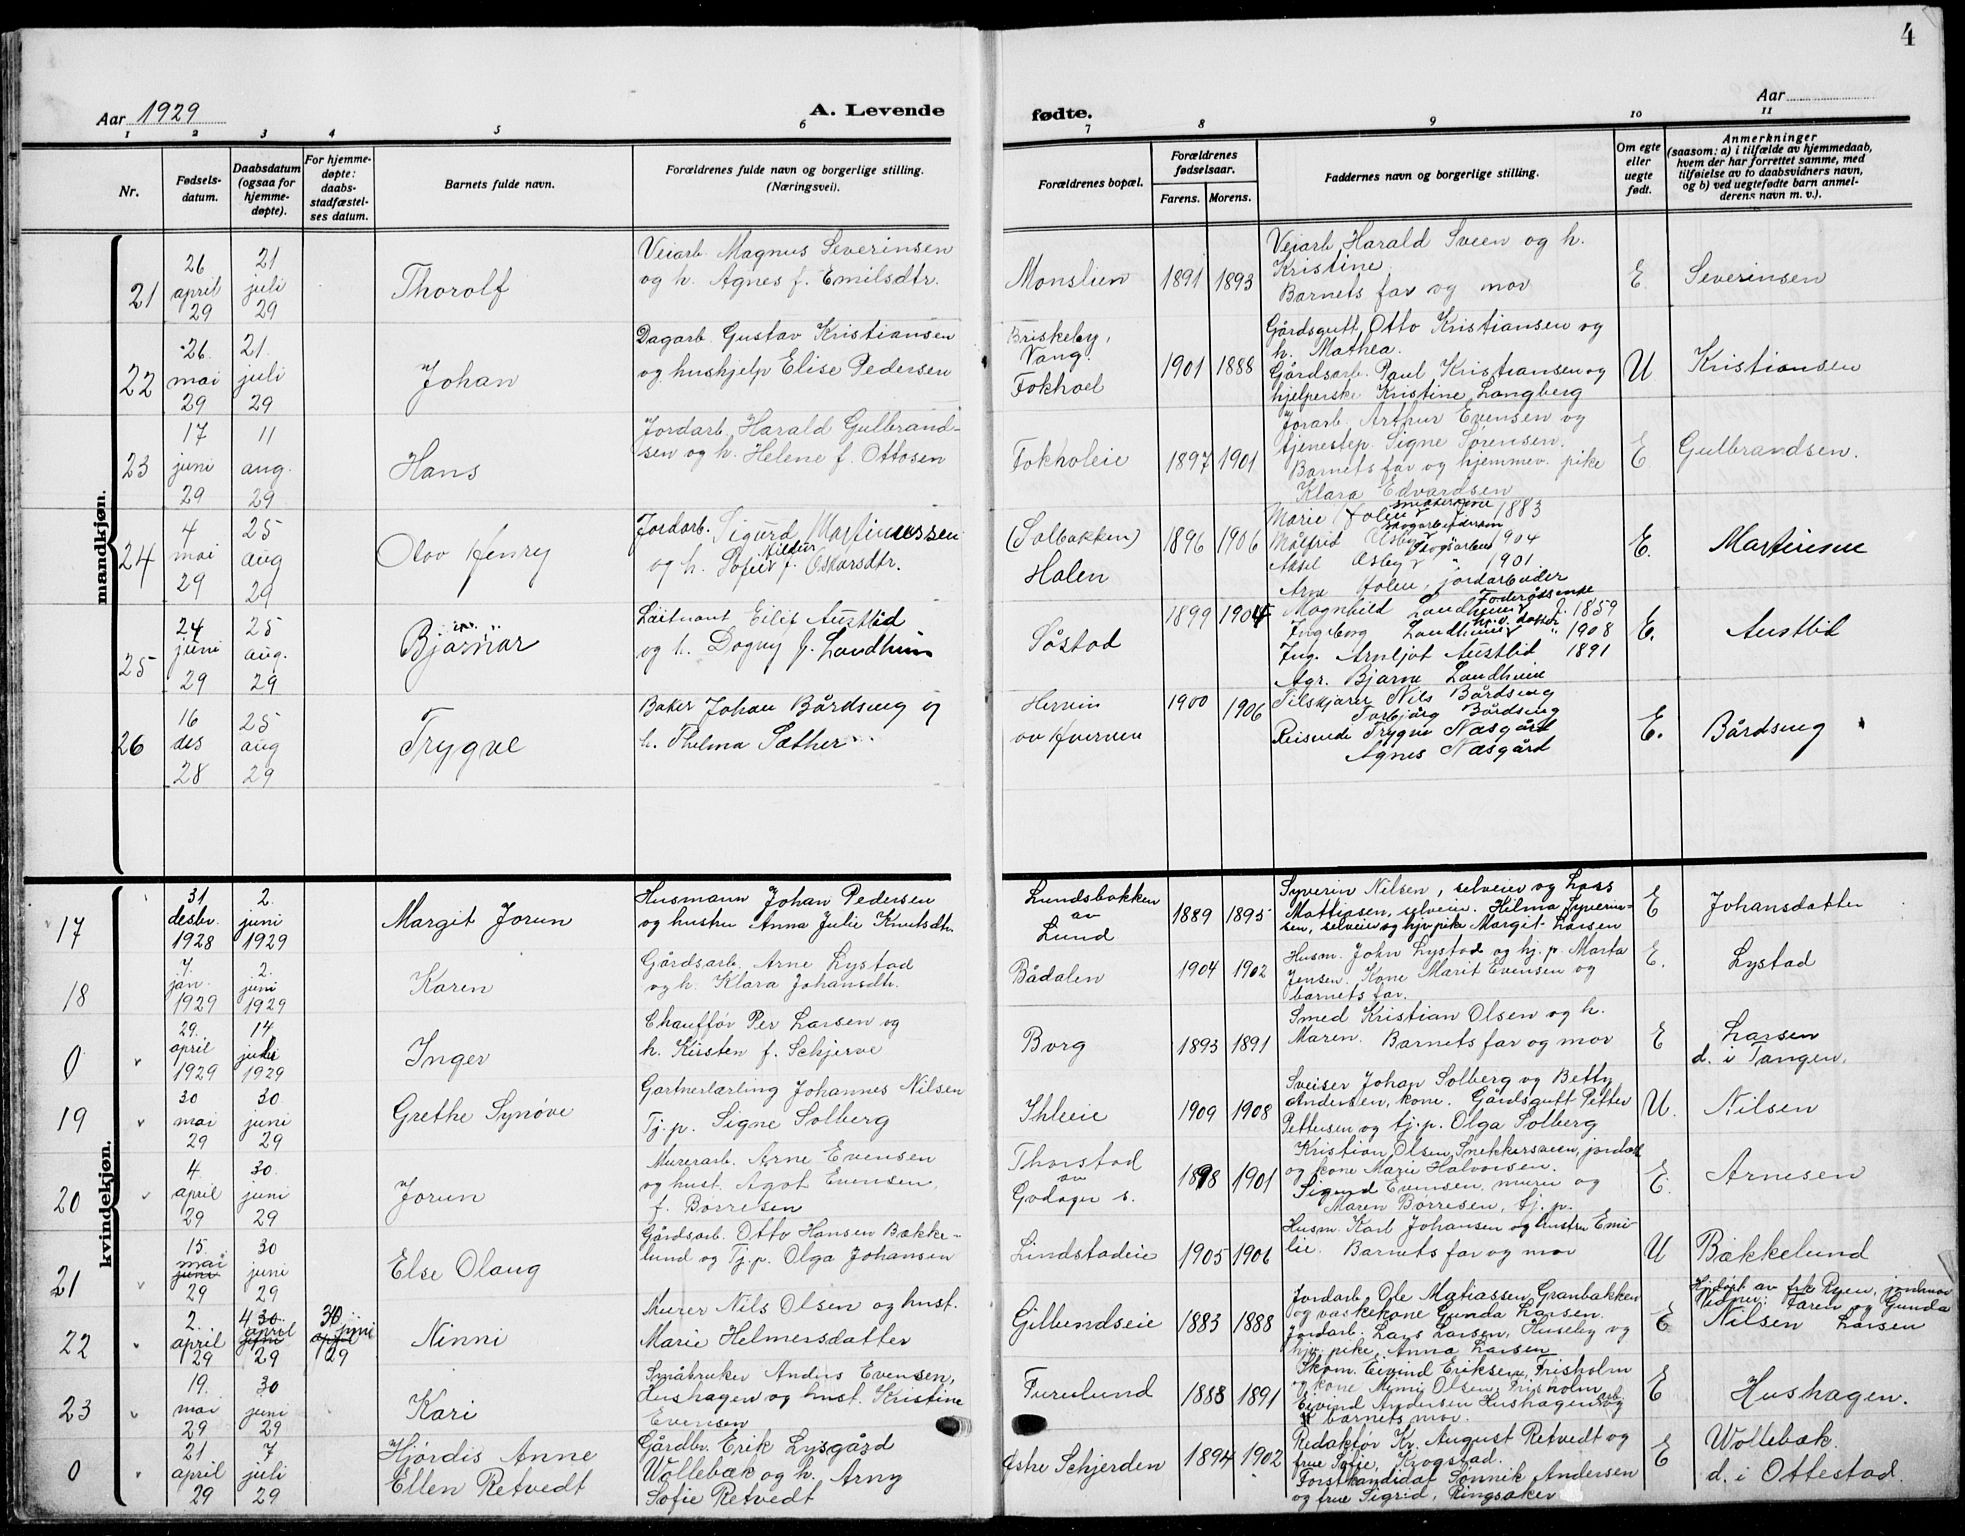 4
Aar 1929
A. Levende
fødte.
Aar
1 2 3 4 5 6 7 8 9 10 11
Nr.
Fødsels-
datum.
Daabsdatum
(ogsaa for
hjemme-
døpte).
For hjemme-
døpte:
daabs-
stadfæstel-
ses datum.
Barnets fulde navn.
Forældrenes fulde navn og borgerlige stilling.
(Næringsvei).
Forældrenes bopæl.
Forældrenes
fødselsaar.
Farens. Morens.
Faddernes navn og borgerlige stilling.
Om egte
eller
uegte
født.
Anmerkninger
(saasom: a) i tilfælde av hjemmedaab,
hvem der har forrettet samme, med
tilføielse av to daabsvidners navn,
og b) ved uegtefødte barn anmel-
derens navn m. v.).
mandkjøn.
21
26
april
29
21
juli
29
Thorolf
Veiarb. Magnus Severinsen
og h. Agnes f. Emilsdtr.
Monslien
1891 1893
Veiarb Harald Sveen og h.
Kristine.
Barnets far og mor
E.
Severinsen
22
26.
mai
29
21.
juli
29
Johan
Dagarb. Gustav Kristiansen
og hushjelp Elise Pedersen
Briskeby,
Vang.
Fokhoel
1901 1888
Gårdsgutt Otto Kristiansen og
h. Mathea.
Gårdsarb. Paul Kristiansen og
hjelperske Kristine Langberg
U
Kristiansen
23
17
juni
29
11
aug.
29
Hans
Jordarb. Harald Gulbrand-
sen og h. Helene f. Ottosen
Fokholeie
1897 1901
Jorarb. Arthur Evensen og
tjenestep. Signe Sørensen.
Barnets far og hjemmev. pike
Klara Edvardsen
E
Gulbrandsen.
24
4
mai
29
25
aug
29
Olov Henry
Jordarb. Sigurd Martinussen
og h. Sofie Mildur f. Oskarsdtr.
(Solbakken)
Holen
1896 1906
Marie Holen 1883
Målfrid Osby 1904
Aksel Osby 1901
Arne Holen, jordarbeider
E.
Martinsen
25
24
juni
29
25
aug.
29
Bjørnar
Løitnant Eilif Austlid
og h. Dagny f. Landheim
Såstad
1899 1904
Magnhild Landheim f. 1859
Ingeborg Landheim " 1908
Ing. Arnljot Austlid 1891
Agr. Bjarne Landheim
E.
Austlid
26
16
des
28
25
aug
29
Trygve
Baker Johan Bårdseng og
h. Thelma Sæther
av Kvernen
1900 1906
Tilskjærer Nils Bårdseng
Torbjørg Bårdseng
Reisende Trygve Næsgård
Agnes Næsgård
E.
Bårdseng
kvindekjøn.
17
31
desbr.
1928
2.
juni
1929
Margit Jorun
Husmann Johan Pedersen
og hustru Anna Julie Knutsdtr.
Lundsbakken
av
Lund
1889 1895
Syverin Nilsen, selveier og Lars
Mattiasen, selveier. Hilma Syverin-
sen, selveier og hjv. pike Margit Larsen
E
Johansdatter
18
7.
jan.
1929
2.
juni
1929
Karen
Gårdsarb. Arne Lystad
og h. Klara Johansdtr.
Bådalen
1904 1902
Husm. John Lystad og hj. p. Marta
Jensen. Kone Marit Evensen og
barnets far.
E.
Lystad
0
29.
april
1929
14
juli
1929
Inger
Chauffør Per Larsen og
h. Kirsten f. Schjerve
Borg
1893 1891
Smed Kristian Olsen og h.
Maren. Barnets far og mor
E
Larsen
d. i Tangen.
19
30
mai
29
30.
juni
29
Grethe Synøve
Gartnerlærling Johannes Nilsen
Tj. p. Signe Solberg
Ihleie
1909 1908
Sveiser Johan Solberg og Betty
Andersen, kone. Gårdsgutt Petter
Pettersen og tj. p. Olga Solberg
U.
Nilsen
20
4.
april
29
30.
juni
29
Jorun
Murerarb. Arne Evensen
og hust. Agot Evensen,
f. Børresen
Thorstad
av
Godager s.
1898 1901
Kristian Olsen Snekkersveen, jordarb
og kone Marie Halvorsen.
Sigurd Evensen, murer og
Maren Børresen, tj. p.
E.
Arnesen
21
15.
mai
juni
29
30
juni
29
Else Olaug
Gårdsarb. Otto Hansen Bække-
lund og Tj. p. Olga Johansen
Lindstadeie
1905 1906
Husm. Karl Johansen og hustru Emi-
lie. Barnets far og mor
U
Bækkelund
22
2.
april
29
4 30.
april
juni
29
30
juni
april
29
Ninni
Murer Nils Olsen og hust.
Marie Helmersdatter
Gillundseie
1883 1888
Jordarb. Ole Matiassen, Granbakken
og vaskekone Gunda Larsen.
Jordarb. Lars Larsen, Huseby og
hjv. pike, Anna Larsen
E
Hjdøpt av frk Ryen, jordmor
Vidner: Faren og Gunda
Nilsen Larsen
23
19.
mai
29
30
juni
29
Kari
Småbruker Anders Evensen,
Hushagen og hust. Kristine
Evensen
Furulund
1888 1891
Skom. Eivind Eriksen, Frisholm
og kone Olsen, Frisholm
Eivind Andersen Hushagen og
barnets mor.
E
Hushagen.
0
21
april
29
7
juli
29
Hjørdis Anne
Ellen Retvedt
Gårdbr. Erik Lysgård
Wollebæk og h. Arny
Sofie Retvedt
Østre Schjerden
1894 1902
Redaktør Kr. August Retvedt og
frue Sofie, Krogstad.
Forstkandidat Sønnik Andersen
og frue Sigrid, Ringsaker
E
Wollebæk.
d. i Ottestad.